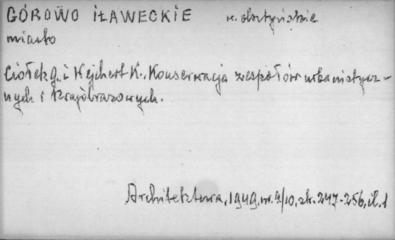 GÓROWO IŁAWECKIE w. olsztyńskie
miasto
Ciołek G. i Wejchert K. Konserwacja zespołów urbanistycz-
nych i krajobrazowych.
Architektura, 1949, nr. 9/10, sk. 247-256, il. 1